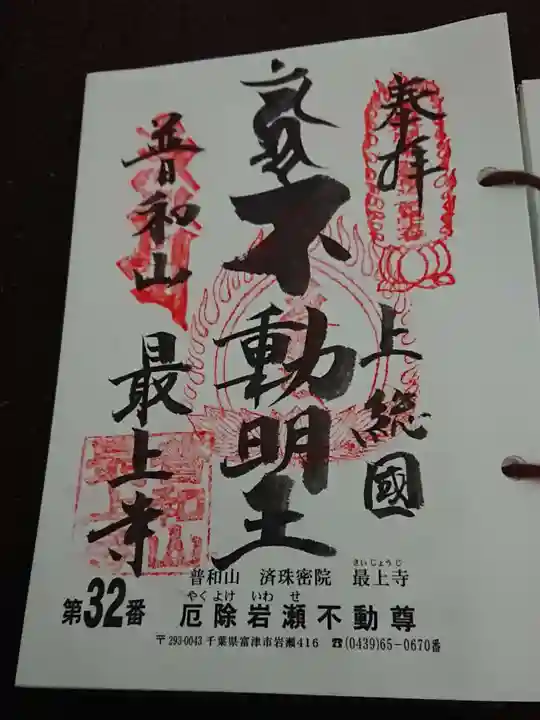 奉拝
上総國
不動明王
普和山
最上寺
普和山 済珠密院 最上寺
さいじょうじ
第32番
厄除岩瀬不動尊
やくよけ いわせ
〒293-0043 千葉県富津市岩瀬416 ☎(0439)65-0670番